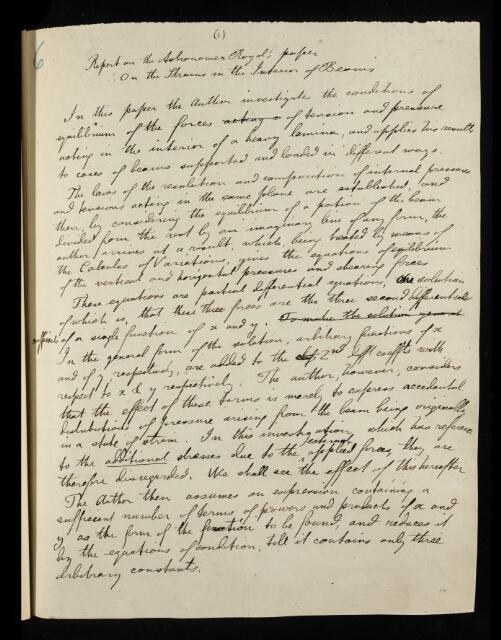 (1)
6
Report on the Astronomer Royal's paper
On the Strains in the Interior of Beams
In this paper the author investigates the conditions of
equilibrium of the forces acting of tension and pressure
acting in the interior of a heavy lamina, and applies his results
to cases of beams supported and loaded in different ways.
The laws of the resolution and composition of internal pressures
and tensions acting in the same plane are established, and
then, by considering the equilibrium of a portion of the beam
divided from the rest by an imaginary line of any form, the
author arrives at a result, which, being treated by means of
the Calculus of Variations, gives the equations of equilibrium
of the vertical and horizontal pressures and shearing forces.
These equations are partial differential equations, the solution
of which is, that these three forces are the three second differential
coefficients of a single function of x and y. To make the solution general
In the general form of the solution, arbitrary functions of x
and of y respectively, are added to the 2nd diff coeffts with
respect to x & y respectively. The author, however, considers
that the effect of these terms is merely to express accidental
distributions of pressure arising from the beam being originally
in a state of strain. In this investigation, which has reference
to the additional stresses due to the external applied forces, they are
therefore disregarded. We shall see the effect of this hereafter
The Author then assumes an expression containing a
sufficient number of terms of powers and products of x and
y as the form of the function to be found, and reduces it
by the equations of condition, till it contains only three
arbitrary constants.